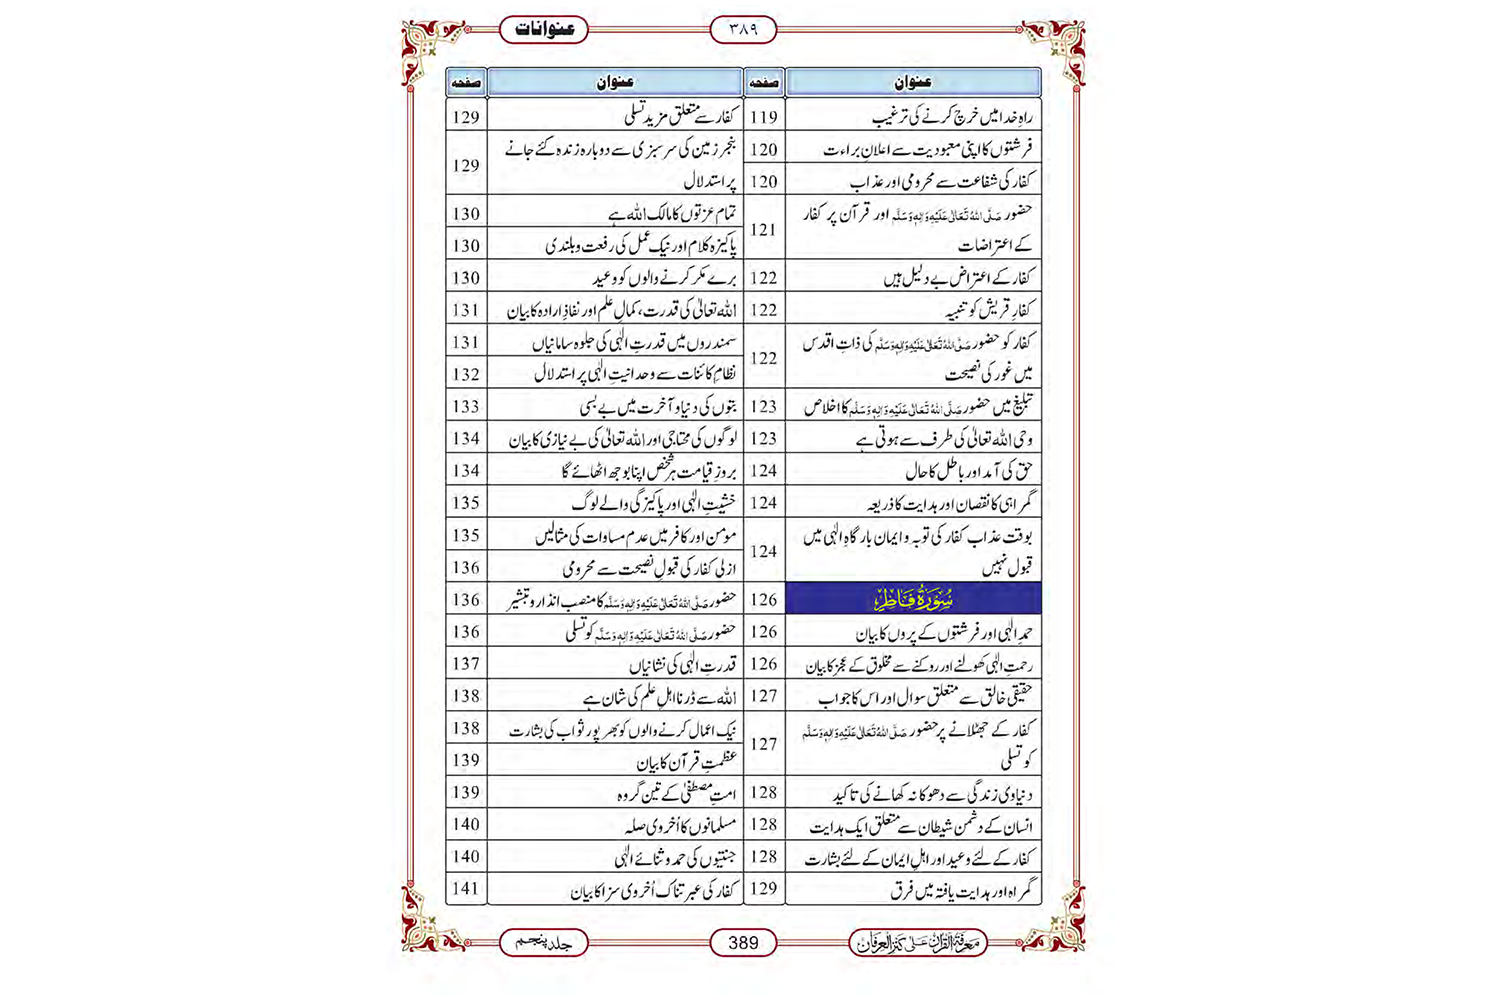 عنوانات
۳۸۹
عنوان صفحہ
راہِ خدا میں خرچ کرنے کی ترغیب 119
فرشتوں کا اپنی معبودیت سے اعلانِ براءت 120
کفار کی شفاعت سے محرومی اور عذاب 120
حضور صَلَّی اللہُ تَعَالٰی عَلَیْہِ وَاٰلِہٖ وَسَلَّم اور قرآن پر کفار
کے اعتراضات 121
کفار کے اعتراض بے دلیل ہیں 122
کفارِ قریش کو تنبیہ 122
کفار کو حضور صَلَّی اللہُ تَعَالٰی عَلَیْہِ وَاٰلِہٖ وَسَلَّم کی ذاتِ اقدس
میں غور کی نصیحت 122
تبلیغ میں حضور صَلَّی اللہُ تَعَالٰی عَلَیْہِ وَاٰلِہٖ وَسَلَّم کا اخلاص 123
وحی اللہ تعالٰی کی طرف سے ہوتی ہے 123
حق کی آمد اور باطل کا حال 124
گمراہی کا نقصان اور ہدایت کا ذریعہ 124
بوقت عذاب کفار کی توبہ و ایمان بارگاہِ الٰہی میں
قبول نہیں 124
سُوْرَۃُ فَاطِر 126
حمدِ الٰہی اور فرشتوں کے پروں کا بیان 126
رحمتِ الٰہی کھولنے اور روکنے سے مخلوق کے عجز کا بیان 126
حقیقی خالق سے متعلق سوال اور اس کا جواب 127
کفار کے جھٹلانے پر حضور صَلَّی اللہُ تَعَالٰی عَلَیْہِ وَاٰلِہٖ وَسَلَّم
کو تسلی 127
دنیاوی زندگی سے دھوکا نہ کھانے کی تاکید 128
انسان کے دشمن شیطان سے متعلق ایک ہدایت 128
کفار کے لئے وعید اور اہلِ ایمان کے لئے بشارت 128
گمراہ اور ہدایت یافتہ میں فرق 129
عنوان صفحہ
کفار سے متعلق مزید تسلی 129
بنجر زمین کی سرسبزی سے دوبارہ زندہ کئے جانے
پر استدلال 129
تمام عزتوں کا مالک اللہ ہے 130
پاکیزہ کلام اور نیک عمل کی رفعت و بلندی 130
برے مکر کرنے والوں کو وعید 130
اللہ تعالٰی کی قدرت، کمالِ علم اور نفاذِ ارادہ کا بیان 131
سمندروں میں قدرتِ الٰہی کی جلوہ سامانیاں 131
نظامِ کائنات سے وحدانیتِ الٰہی پر استدلال 132
بتوں کی دنیا و آخرت میں بے بسی 133
لوگوں کی محتاجی اور اللہ تعالٰی کی بے نیازی کا بیان 134
بروزِ قیامت ہر شخص اپنا بوجھ اٹھائے گا 134
خشیتِ الٰہی اور پاکیزگی والے لوگ 135
مومن اور کافر میں عدم مساوات کی مثالیں 135
ازلی کفار کی قبولِ نصیحت سے محرومی 136
حضور صَلَّی اللہُ تَعَالٰی عَلَیْہِ وَاٰلِہٖ وَسَلَّم کا منصب انذار و تبشیر 136
حضور صَلَّی اللہُ تَعَالٰی عَلَیْہِ وَاٰلِہٖ وَسَلَّم کو تسلی 136
قدرتِ الٰہی کی نشانیاں 137
اللہ سے ڈرنا اہلِ علم کی شان ہے 138
نیک اعمال کرنے والوں کو بھرپور ثواب کی بشارت 138
عظمتِ قرآن کا بیان 139
امتِ مصطفیٰ کے تین گروہ 139
مسلمانوں کا اُخروی صلہ 140
جنتیوں کی حمد و ثنائے الٰہی 140
کفار کی عبرتناک اُخروی سزا کا بیان 141
معرفۃ القرآن علی کنز العرفان
389
جلد پنجم